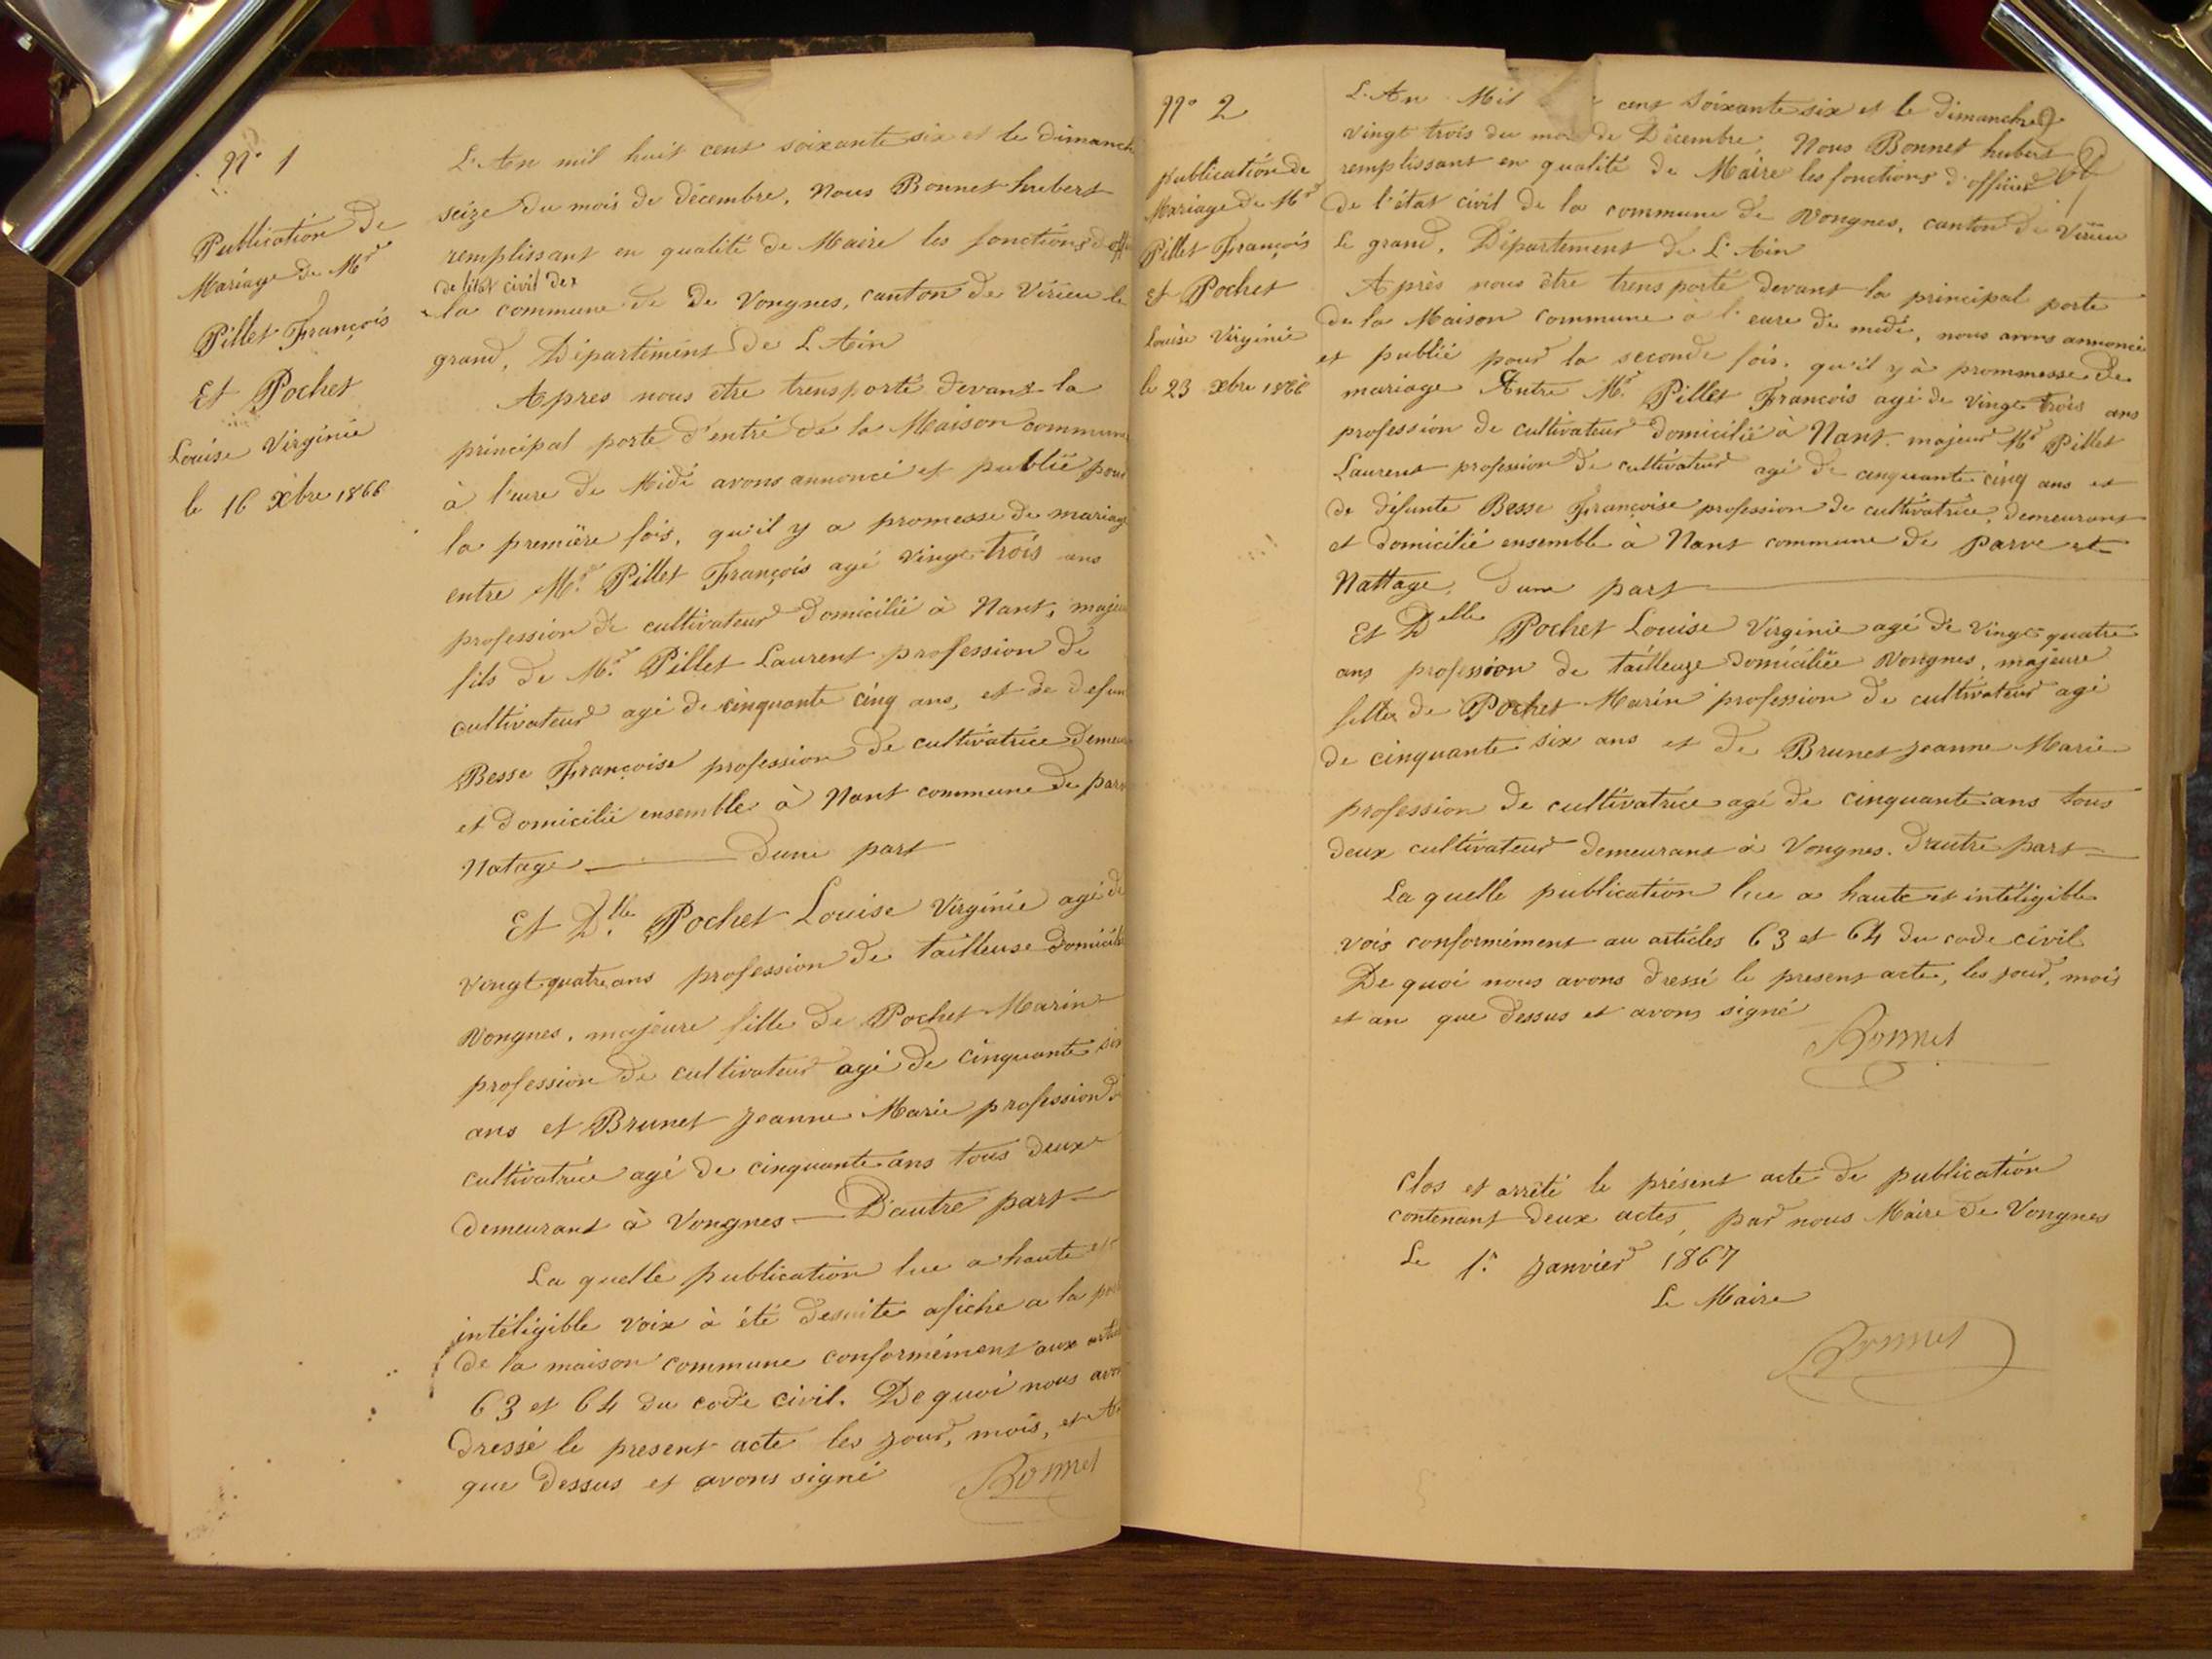 N° 1
Publication de
Mariage de Mr
Pillet François
Et Pochet
Louise Virginie
le 16 Xbre 1866
L'An mil huit cent soixante six et le dimanch
seize du mois de décembre, Nous Bonnet hubert
remplissant en qualité de Maire les fonctions d'offi
de l'état civil de
la commune de De Vongnes, canton de Virieu le
grand, Département De L'Ain
Apres nous être transporté devant la
principal porte d'entré de la Maison commune
à l'eure de Midi avons annoncé et publié pour
la première fois, qu'il y a promesse de mariage
entre Mr. Pillet François agé vingt trois ans
profession de cultivateur domicilié à Nant, majeu
fils de Mr. Pillet Laurent profession de
cultivateur agé de cinquante cinq ans, et de defun
Besse Françoise profession de cultivatrice demeu
et domicilié ensemble à Nant commune de parv
Natage dune part
Et Dlle. Pochet Louise Virginie agé de
vingt quatre ans profession de tailleuse domicili
Vongnes, majeure fille de Pochet Marin
profession de cultivateur agé de cinquante six
ans et Brunet Jeanne Marie profession d
cultivatrice agé de cinquante ans tous deux
demeurant à Vongnes D'autre part
La quelle publication lue a haute et
intéligible voix à été desuite afiche a la po
de la maison commune conformément aux artic
63 et 64 du code civil. De quoi nous avo
dressé le present acte les jour, mois, et A
que dessus et avons signé
Bonnet
N° 2
publication de
Mariage de Mr
Pillet François
et Pochet
Louise Virginie
le 23 xbre 1866
L'An Mil cent Soixante six et le dimanche
vingt trois du mo de Décembre, Nous Bonnet hubert
remplissant en qualité de Maire les fonctions d'officier
de l'état civil de la commune de Vongnes, canton de Virieu
le grand, Département de L'Ain
Après nous être transporté devant la principal porte
de la Maison commune à l'eure de midi, nous avons annoncé
et publié pour la seconde fois, qu'il y à prommesse de
mariage Entre Mr. Pillet François agé de vingt trois ans
profession de cultivateur domicilié à Nant, majeur Mr Pillet
Laurent profession de cultivateur agé de cinquante cinq ans et
de défunte Besse Françoise profession de cultivatrice, demeurant
et domicilié ensemble à Nant commune de parve et
Nattage, dune part
Et Delle Pochet Louise Virginie agé de vingt quatre
ans profession de tailleuze domiciliée Vongnes, majeure
fille de Pochet Marin profession de cultivateur agé
de cinquante six ans et de Brunet Jeanne Marie
profession de cultivatrice agé de cinquante ans tous
deux cultivateur demeurant à Vongnes. D'autre part
La quelle publication lue a haute et intéligible
vois conformément au articles 63 et 64 du code civil
De quoi nous avons dressé le present acte, les jour, mois
et an que dessus et avons signé
Bonnet
Clos et arrêté le présent acte de publication
contenant deux actes, par nous Maire de Vongnes
Le 1r Janvier 1867
Le Maire
Bonnet